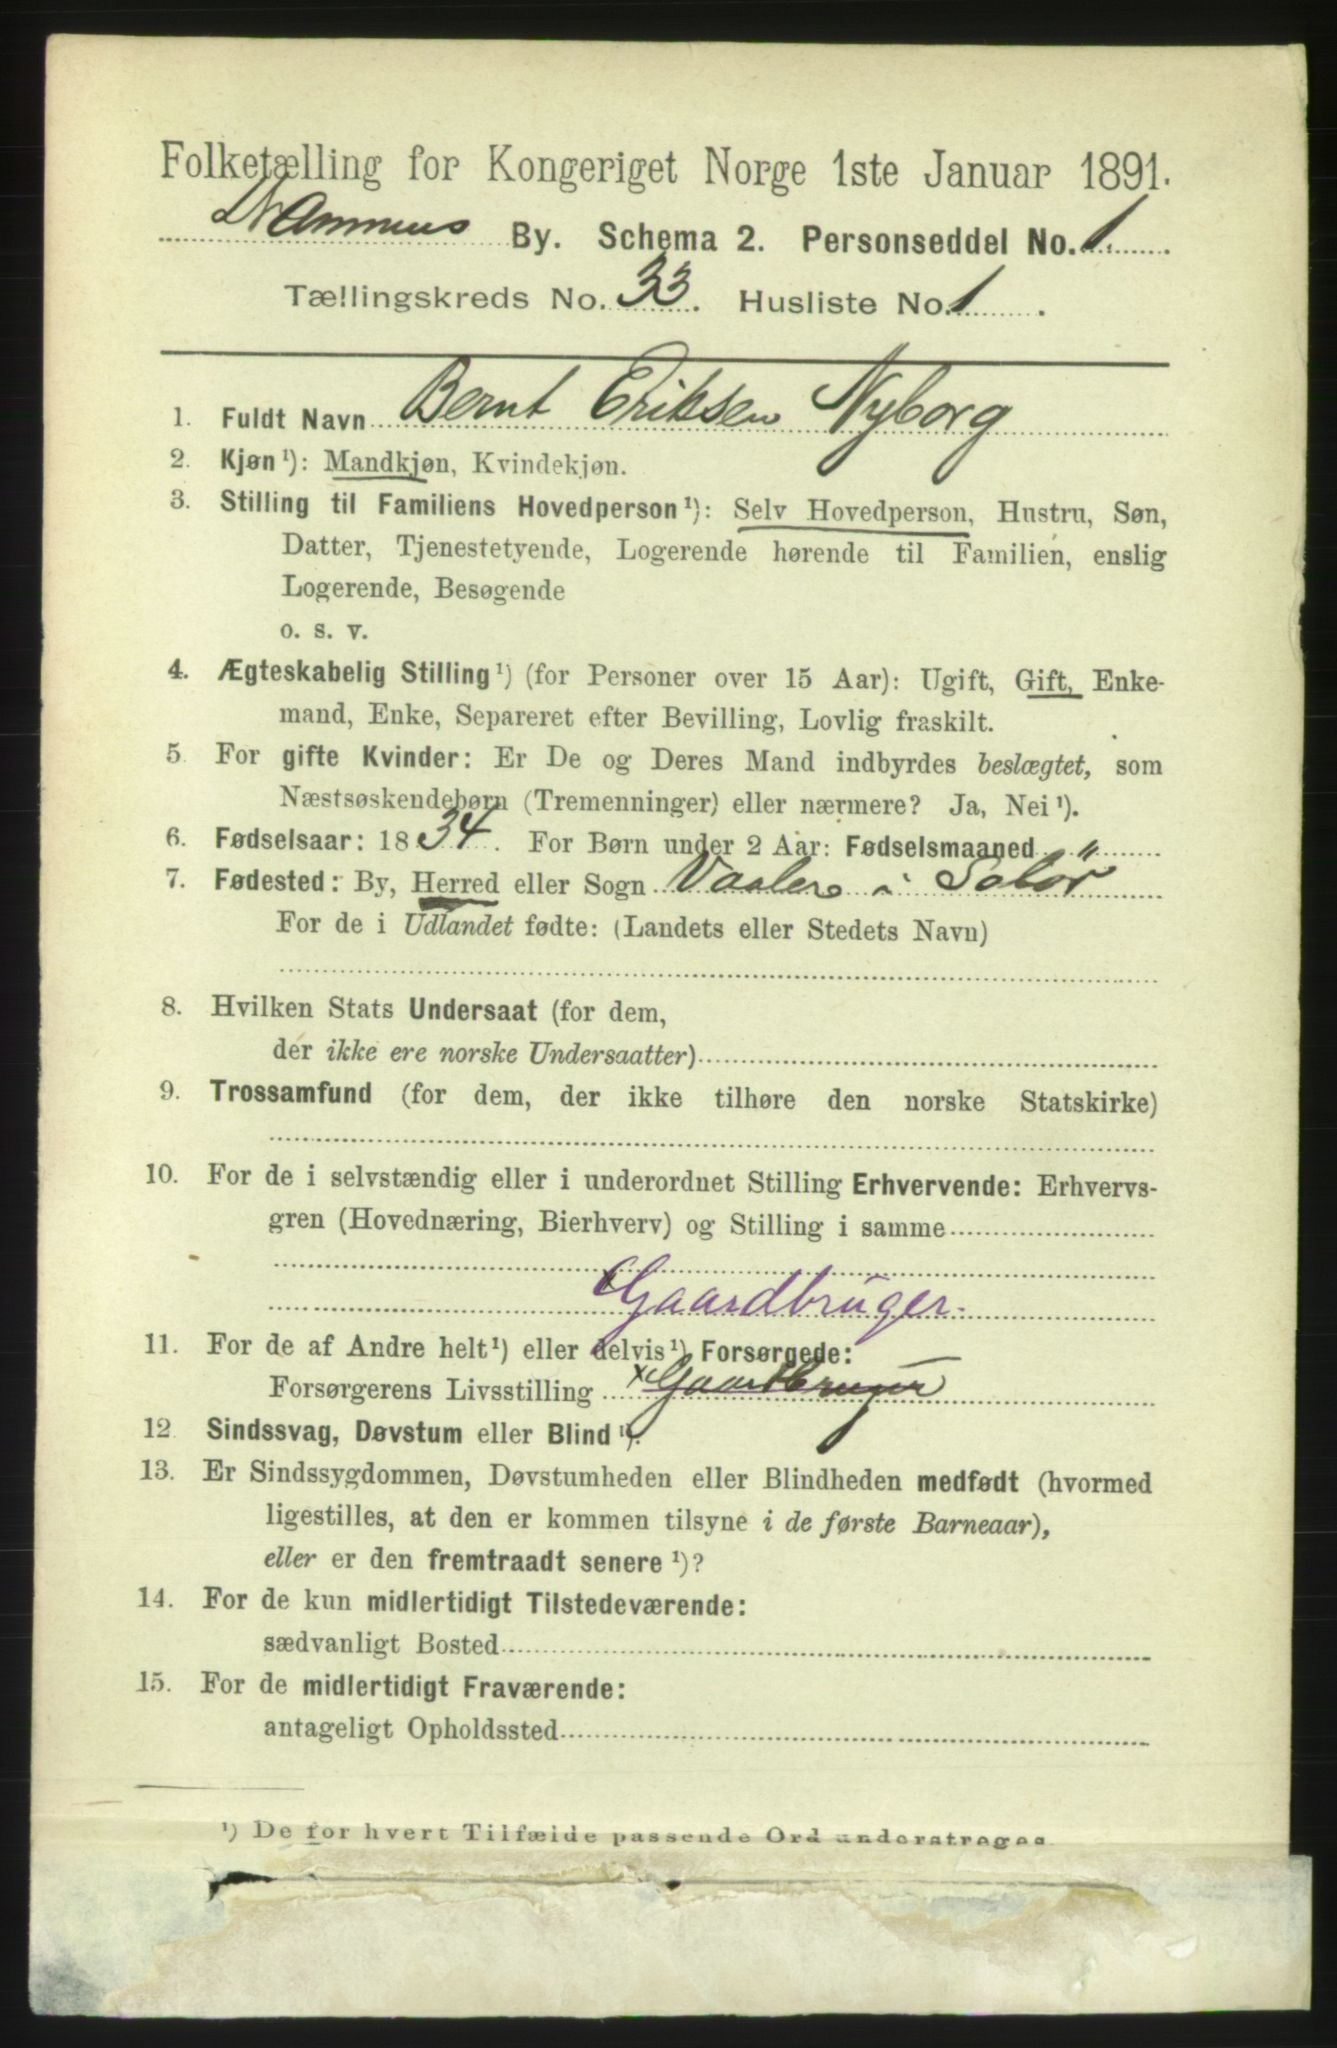 Folketælling for Kongeriget Norge 1ste Januar 1891.
Drammens By. Schema 2. Personseddel No. 1
Tællingskreds No. 33. Husliste No. 1.
1. Fuldt Navn Bernt Eriksen Nyborg
2. Kjøn ¹): Mandkjøn, Kvindekjøn.
3. Stilling til Familiens Hovedperson ¹): Selv Hovedperson, Hustru, Søn,
Datter, Tjenestetyende, Logerende hørende til Familien, enslig
Logerende, Besøgende
o. s. v.
4. Ægteskabelig Stilling ¹) (for Personer over 15 Aar): Ugift, Gift, Enke-
mand, Enke, Separeret efter Bevilling, Lovlig fraskilt.
5 For gifte Kvinder: Er De og Deres Mand indbyrdes beslægtet, som
Næstsøskendebørn (Tremenninger) eller nærmere? Ja, Nei ¹).
6. Fødselsaar: 1834. For Børn under 2 Aar: Fødselsmaaned „
7. Fødested: By, Herred eller Sogn Vaaler i Solør
For de i Udlandet fødte: (Landets eller Stedets Navn)
8. Hvilken Stats Undersaat (for dem,
der ikke ere norske Undersaatter)
9. Trossamfund (for dem, der ikke tilhøre den norske Statskirke)
10. For de i selvstændig eller i underordnet Stilling Erhvervende: Erhvervs-
gren (Hovednæring, Bierhverv) og Stilling i samme
x Gaardbruger.
11. For de af Andre helt ¹) eller delvis ¹) Forsørgede:
Forsørgerens Livsstilling x Gaardbruger
12 Sindssvag, Døvstum eller Blind ¹).
13. Er Sindssygdommen, Døvstumheden eller Blindheden medfødt (hvormed
ligestilles, at den er kommen tilsyne i de første Barneaar),
eller er den fremtraadt senere ¹)?
14. For de kun midlertidigt Tilstedeværende:
sædvanligt Bosted
15. For de midlertidigt Fraværende:
antageligt Opholdssted
¹) De for hvert Tilfælde passende Ord understreges